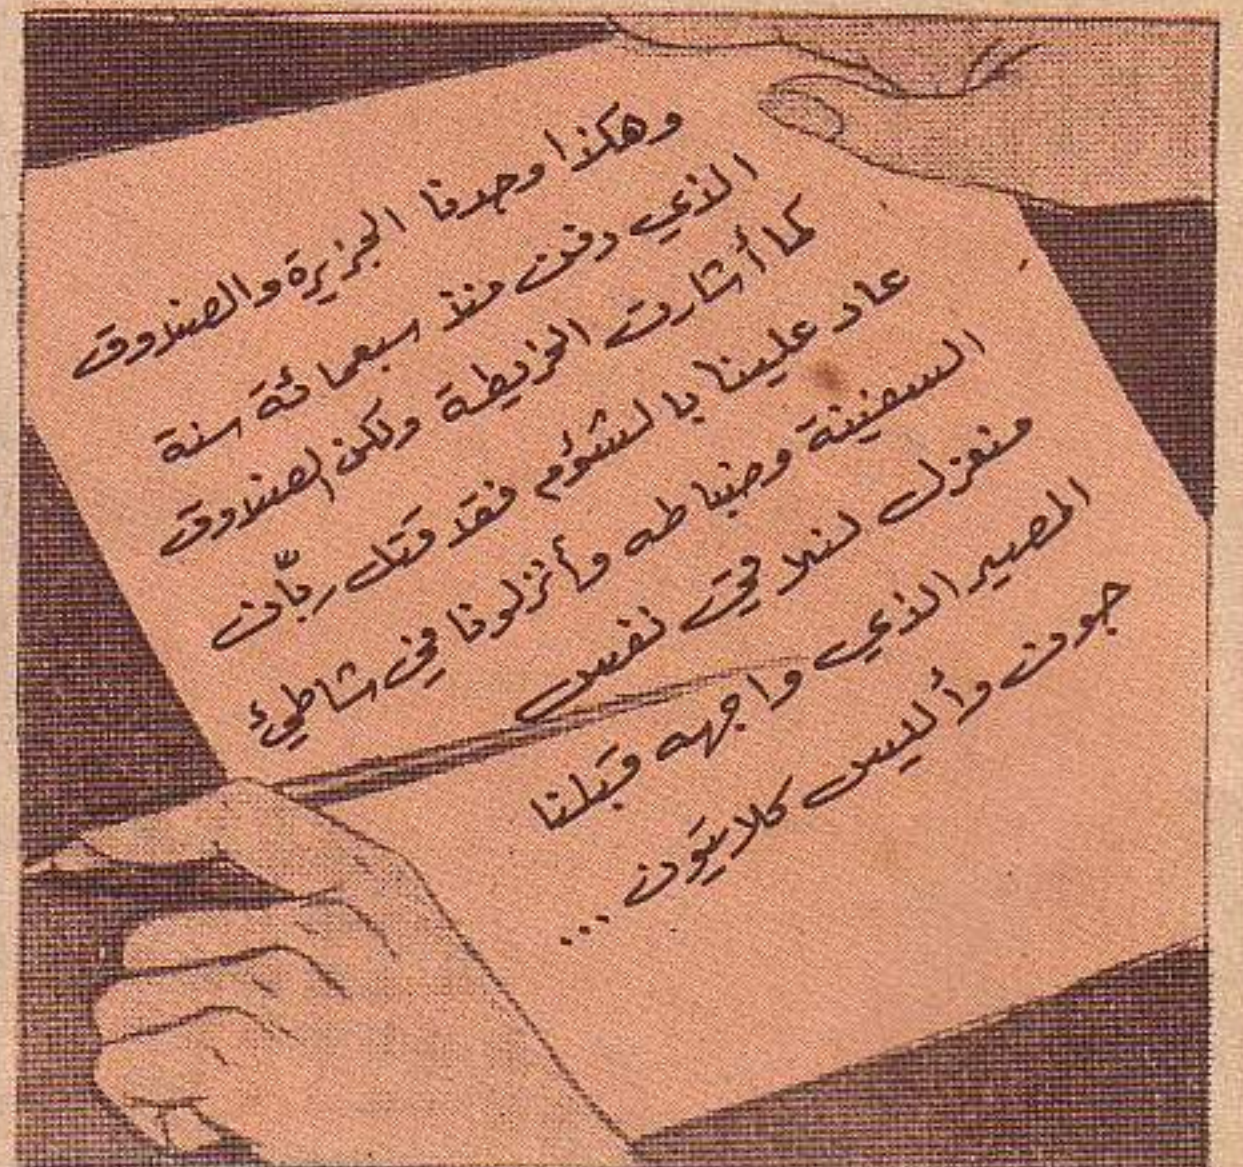 وهكذا وجدنا الجزيرة والصندوق
الذي دفن منذ سبعمائة سنة
كما أشارت الخريطة ولكن الصندوق
عاد علينا بالشؤم فقد قتل ربّان
السفينة وضباطه وأنزلونا في شاطئ
منعزل لنلاقي نفس
المصير الذي واجهه قبلنا
جون وأليس كلايتون ...